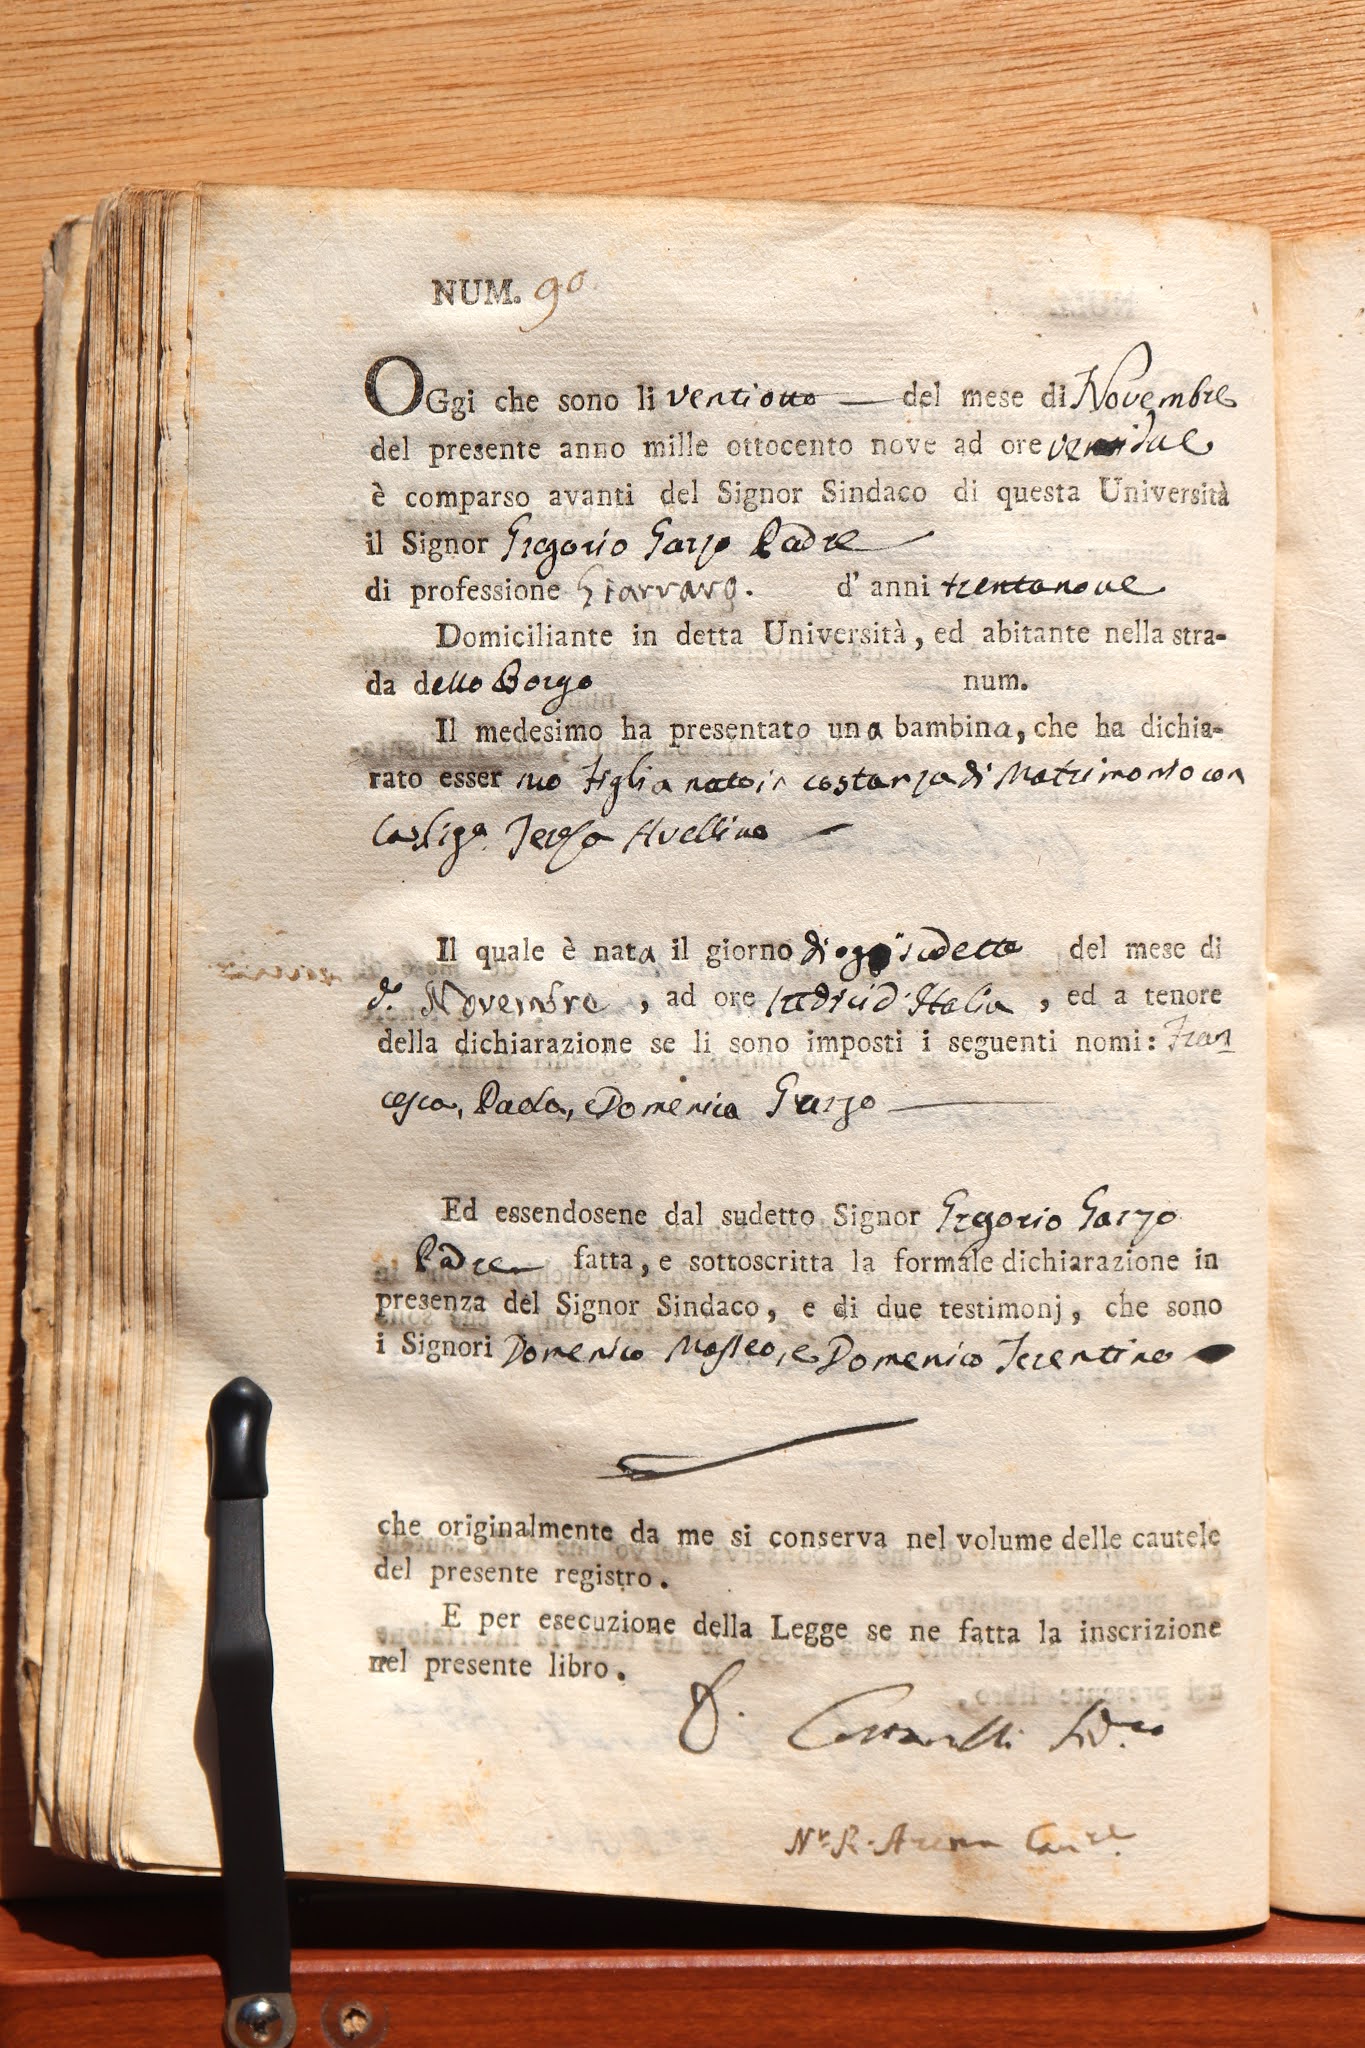 NUM. 90.
OGgi che sono li ventiotto del mese di Novembre
del presente anno mille ottocento nove ad ore
è comparso avanti del Signor Sindaco di questa Università
il Signor Gregorio Garzo Padre
di professione Giarraro. d' anni trentanove
Domiciliante in detta Università, ed abitante nella stra-
da dello Borgo num.
Il medesimo ha presentato una bambina, che ha dichia-
rato esser suo figlia nato in costanza di Matrimonio con
Teresa Avellino
Il quale è nata il giorno di oggi sudetto del mese di
do Novembre, ad ore d'Italia, ed a tenore
della dichiarazione se li sono imposti i seguenti nomi: Fran
cesca, Paola, Domenica Garzo
Ed essendosene dal sudetto Signor Gregorio Garzo
Padre fatta, e sottoscritta la formale dichiarazione in
presenza del Signor Sindaco, e di due testimonj, che sono
i Signori Domenico e Domenico
che originalmente da me si conserva nel volume delle cautele
del presente registro.
E per esecuzione della Legge se ne fatta la inscrizione
nel presente libro.
Nr R. Arena Canre